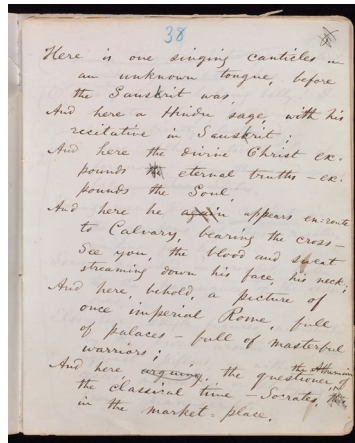 38
Here is one singing canticles in
an unknown tongue, before
the Sanskrit was.
And here a Hindu sage, with his
recitative in Sanskrit;
And here the divine Christ ex-
pounds the eternal truths – ex-
pounds the Soul,
And here he again appears en-route
to Calvary, bearing the cross –
See you, the blood and sweat
streaming down his face, his neck;
And here, behold, a picture of
once imperial Rome, full
of palaces – full of masterful
warriors;
And here arguing, the questioner, the Athenian of
the classical time – Socrates,
in the market-place,